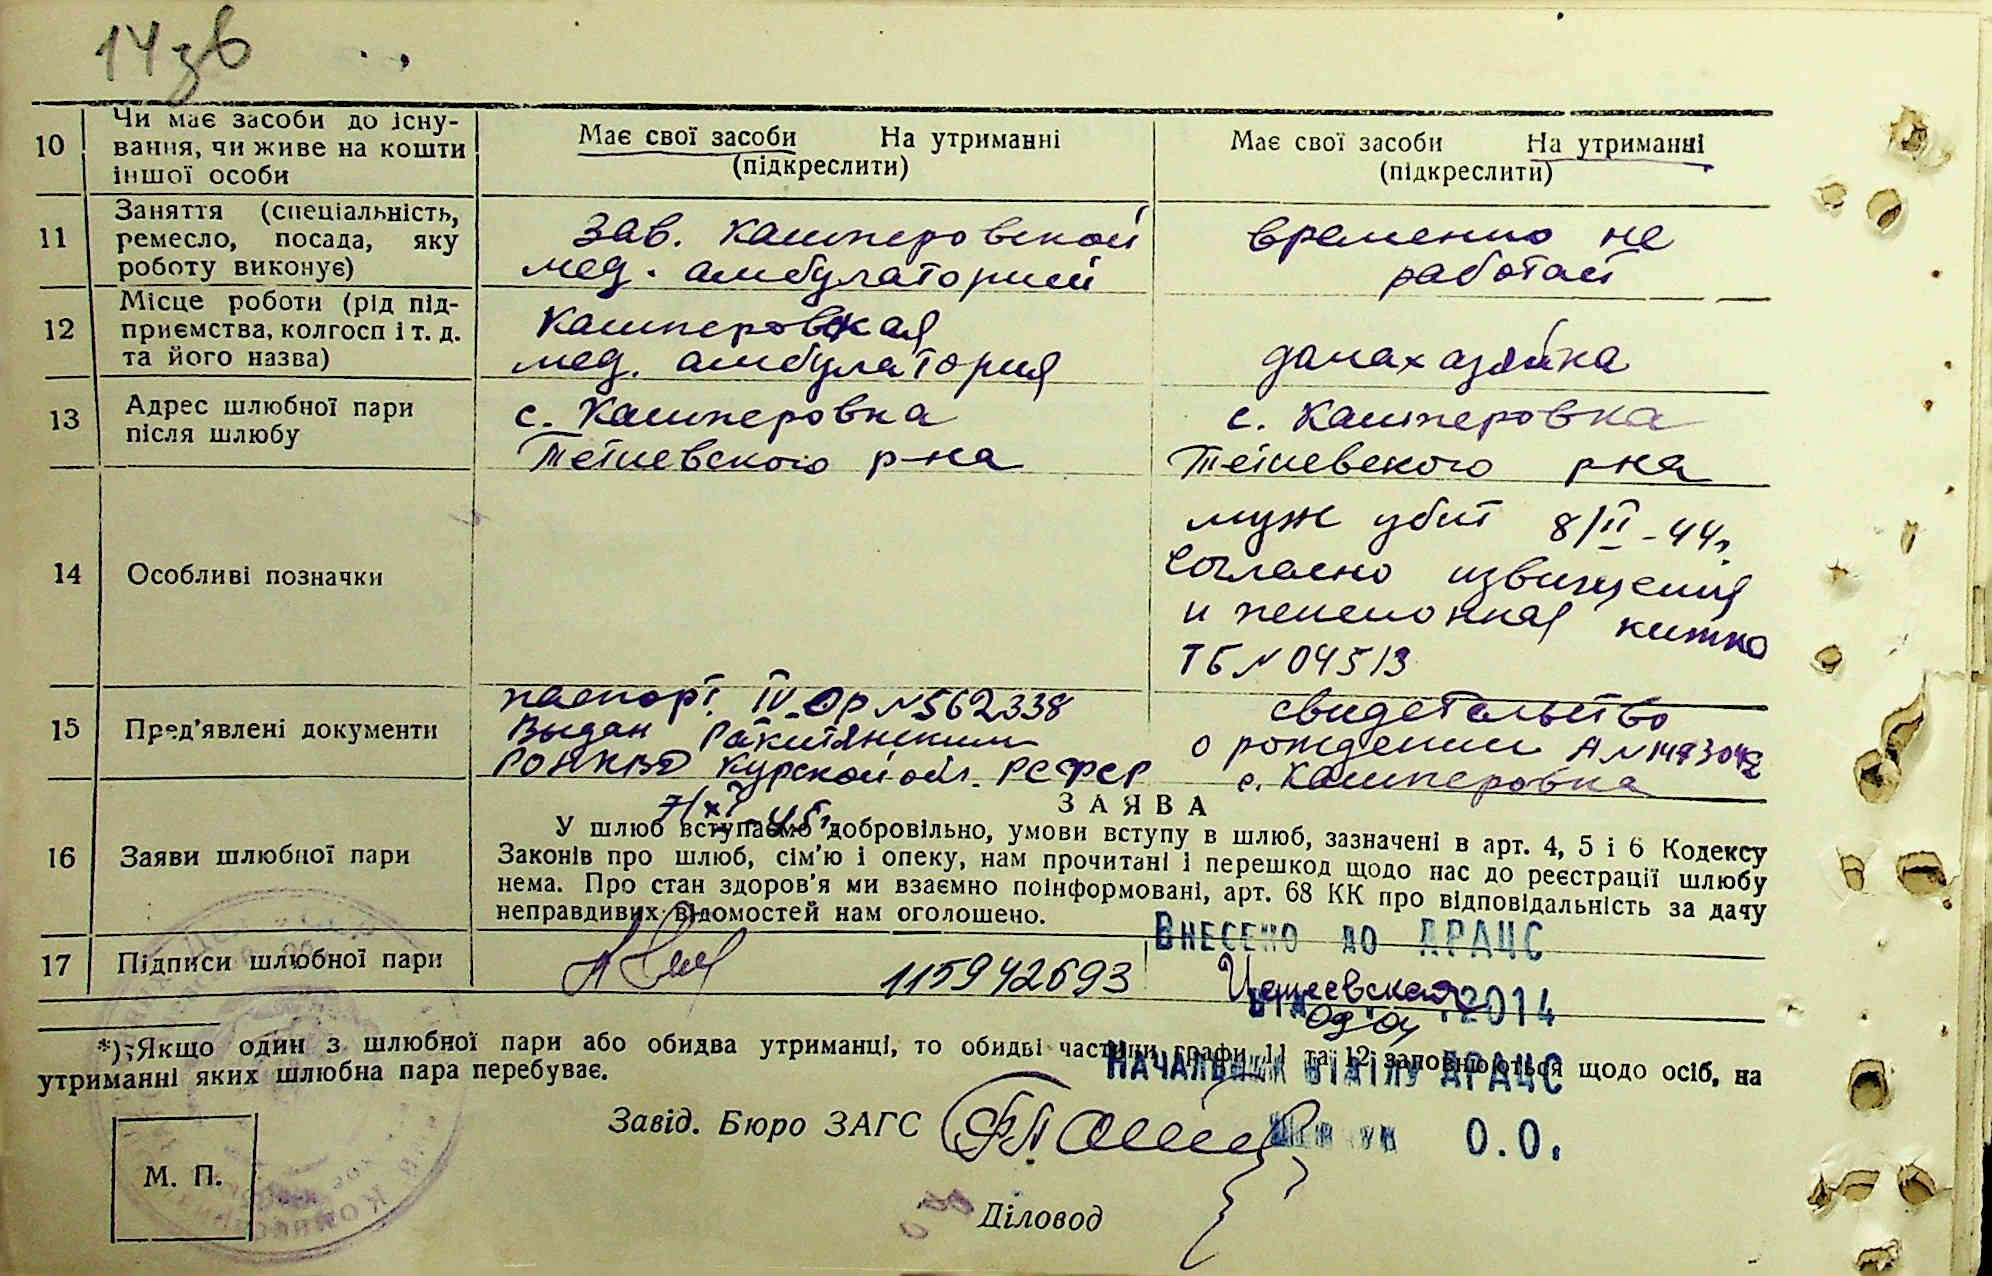 14 зв
10 Чи має засоби до існу-
вання, чи живе на кошти
іншої особи
Має свої засоби На утриманні
(підкреслити)
Має свої засоби На утриманні
(підкреслити)
11 Заняття (спеціальність,
ремесло, посада, яку
роботу виконує)
зав. Кашперовской
мед. амбулаторией
временно не
работает
12 Місце роботи (рід під-
приємства, колгосп і т. д.
та його назва)
Кашперовская
мед. амбулатория
домахазяйка
13 Адрес шлюбної пари
після шлюбу
с. Кашперовка
Тетиевского р-на
с. Кашперовка
Тетиевского р-на
14 Особливі позначки
муж убит 8/II-44 г.
Согласно извищения
и пенсионная книжка
ТБ № 04513
15 Пред'явлені документи
паспорт IV-ОР №562338
Выдан Ракитянским
РОНКВД Курской обл. РСФСР
7/XI-45 г.
свидетельство
о рождении А №
с. Кашперовка
16 Заяви шлюбної пари
ЗАЯВА
У шлюб вступаємо добровільно, умови вступу в шлюб, зазначені в арт. 4, 5 і 6 Кодексу
Законів про шлюб, сім'ю і опеку, нам прочитані і перешкод щодо нас до реєстрації шлюбу
нема. Про стан здоров'я ми взаємно поінформовані, арт. 68 КК про відповідальність за дачу
неправдивих відомостей нам оголошено.
17 Підписи шлюбної пари
115942693
Внесено до ДРАЦС
від 2014
*) Якщо один з шлюбної пари або обидва утриманці, то обидві частини графи 11 та 12 заповнюються щодо осіб, на
утриманні яких шлюбна пара перебуває.
Начальник відділу ДРАЦС
О.О.
Завід. Бюро ЗАГС
М. П.
Діловод